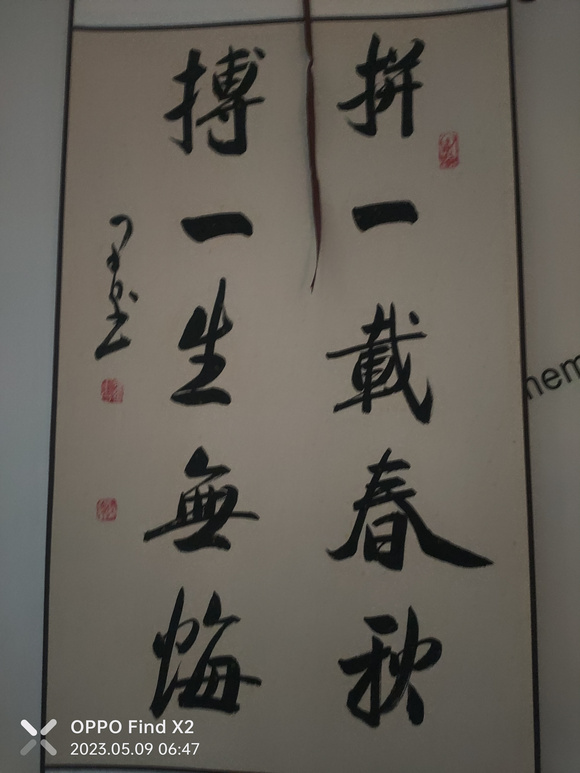 拼一載春秋
搏一生無悔
hem
OPPO Find X2
2023.05.09 06:47